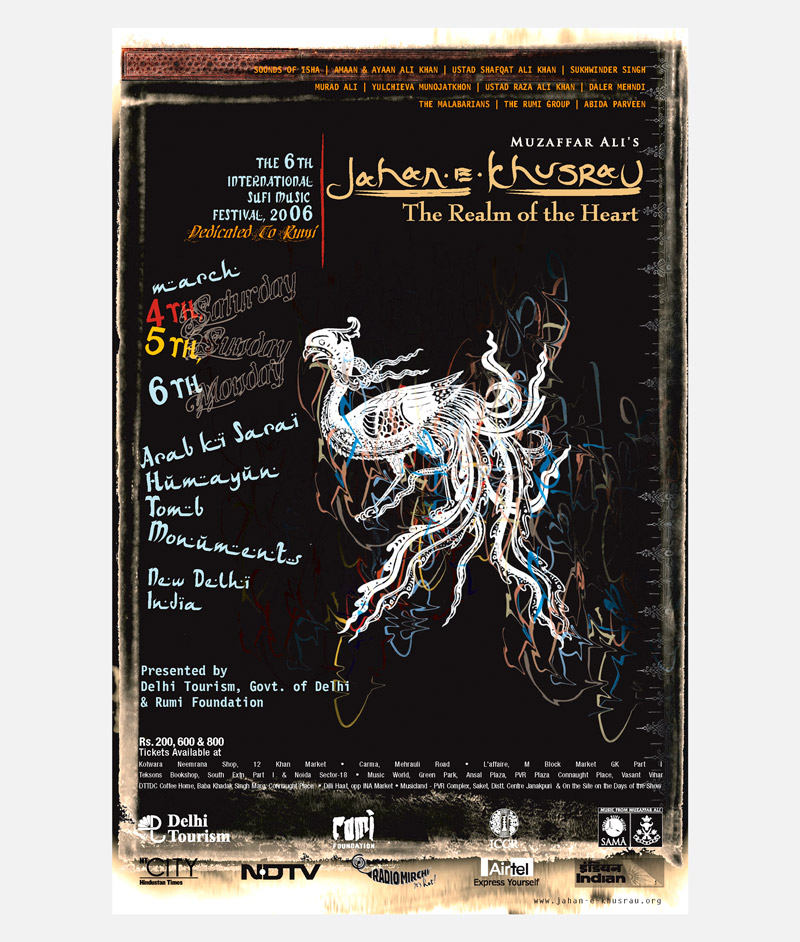 SOUNDS OF ISHA | AMAAN & AYAAN ALI KHAN | USTAD SHAFQAT ALI KHAN | SUKHWINDER SINGH
MURAD ALI | YULCHIEVA MUNOJATKHON | USTAD RAZA ALI KHAN | DALER MEHNDI
THE MALABARIANS | THE RUMI GROUP | ABIDA PARVEEN
MUZAFFAR ALI'S
Jahan.E.Khusrau
The Realm of the Heart
THE 6TH
INTERNATIONAL
SUFI MUSIC
FESTIVAL, 2006
Dedicated To Rumi
march
4TH, Saturday
5TH, Sunday
6TH Monday
Arab ki Sarai
Humayun
Tomb
Monuments
New Delhi
India
Presented by
Delhi Tourism, Govt. of Delhi
& Rumi Foundation
Rs. 200, 600 & 800
Tickets Available at
Kolwara Neemrana Shop, 12 Khan Market • Carma, Mehrauli Road • L'affaire, M Block Market GK Part I
Teksons Bookshop, South Extn, Part I & Noida Sector-18 • Music World, Green Park, Ansal Plaza, PVR Plaza Connaught Place, Vasant Vihar
DTTDC Coffee Home, Baba Khadak Singh Marg, Connaught Place • Dilli Haat, opp INA Market • Musicland - PVR Complex, Saket, Distt. Centre Janakpuri & On the Site on the Days of the Show
Delhi
Tourism
rumi
FOUNDATION
ICCR
MUSIC FROM MUZAFFAR ALI
SAMĀ
HT CITY
Hindustan Times
NDTV
RADIO MIRCHI
It's hot!
Airtel
Express Yourself
इंडियन
Indian
www.jahan-e-khusrau.org